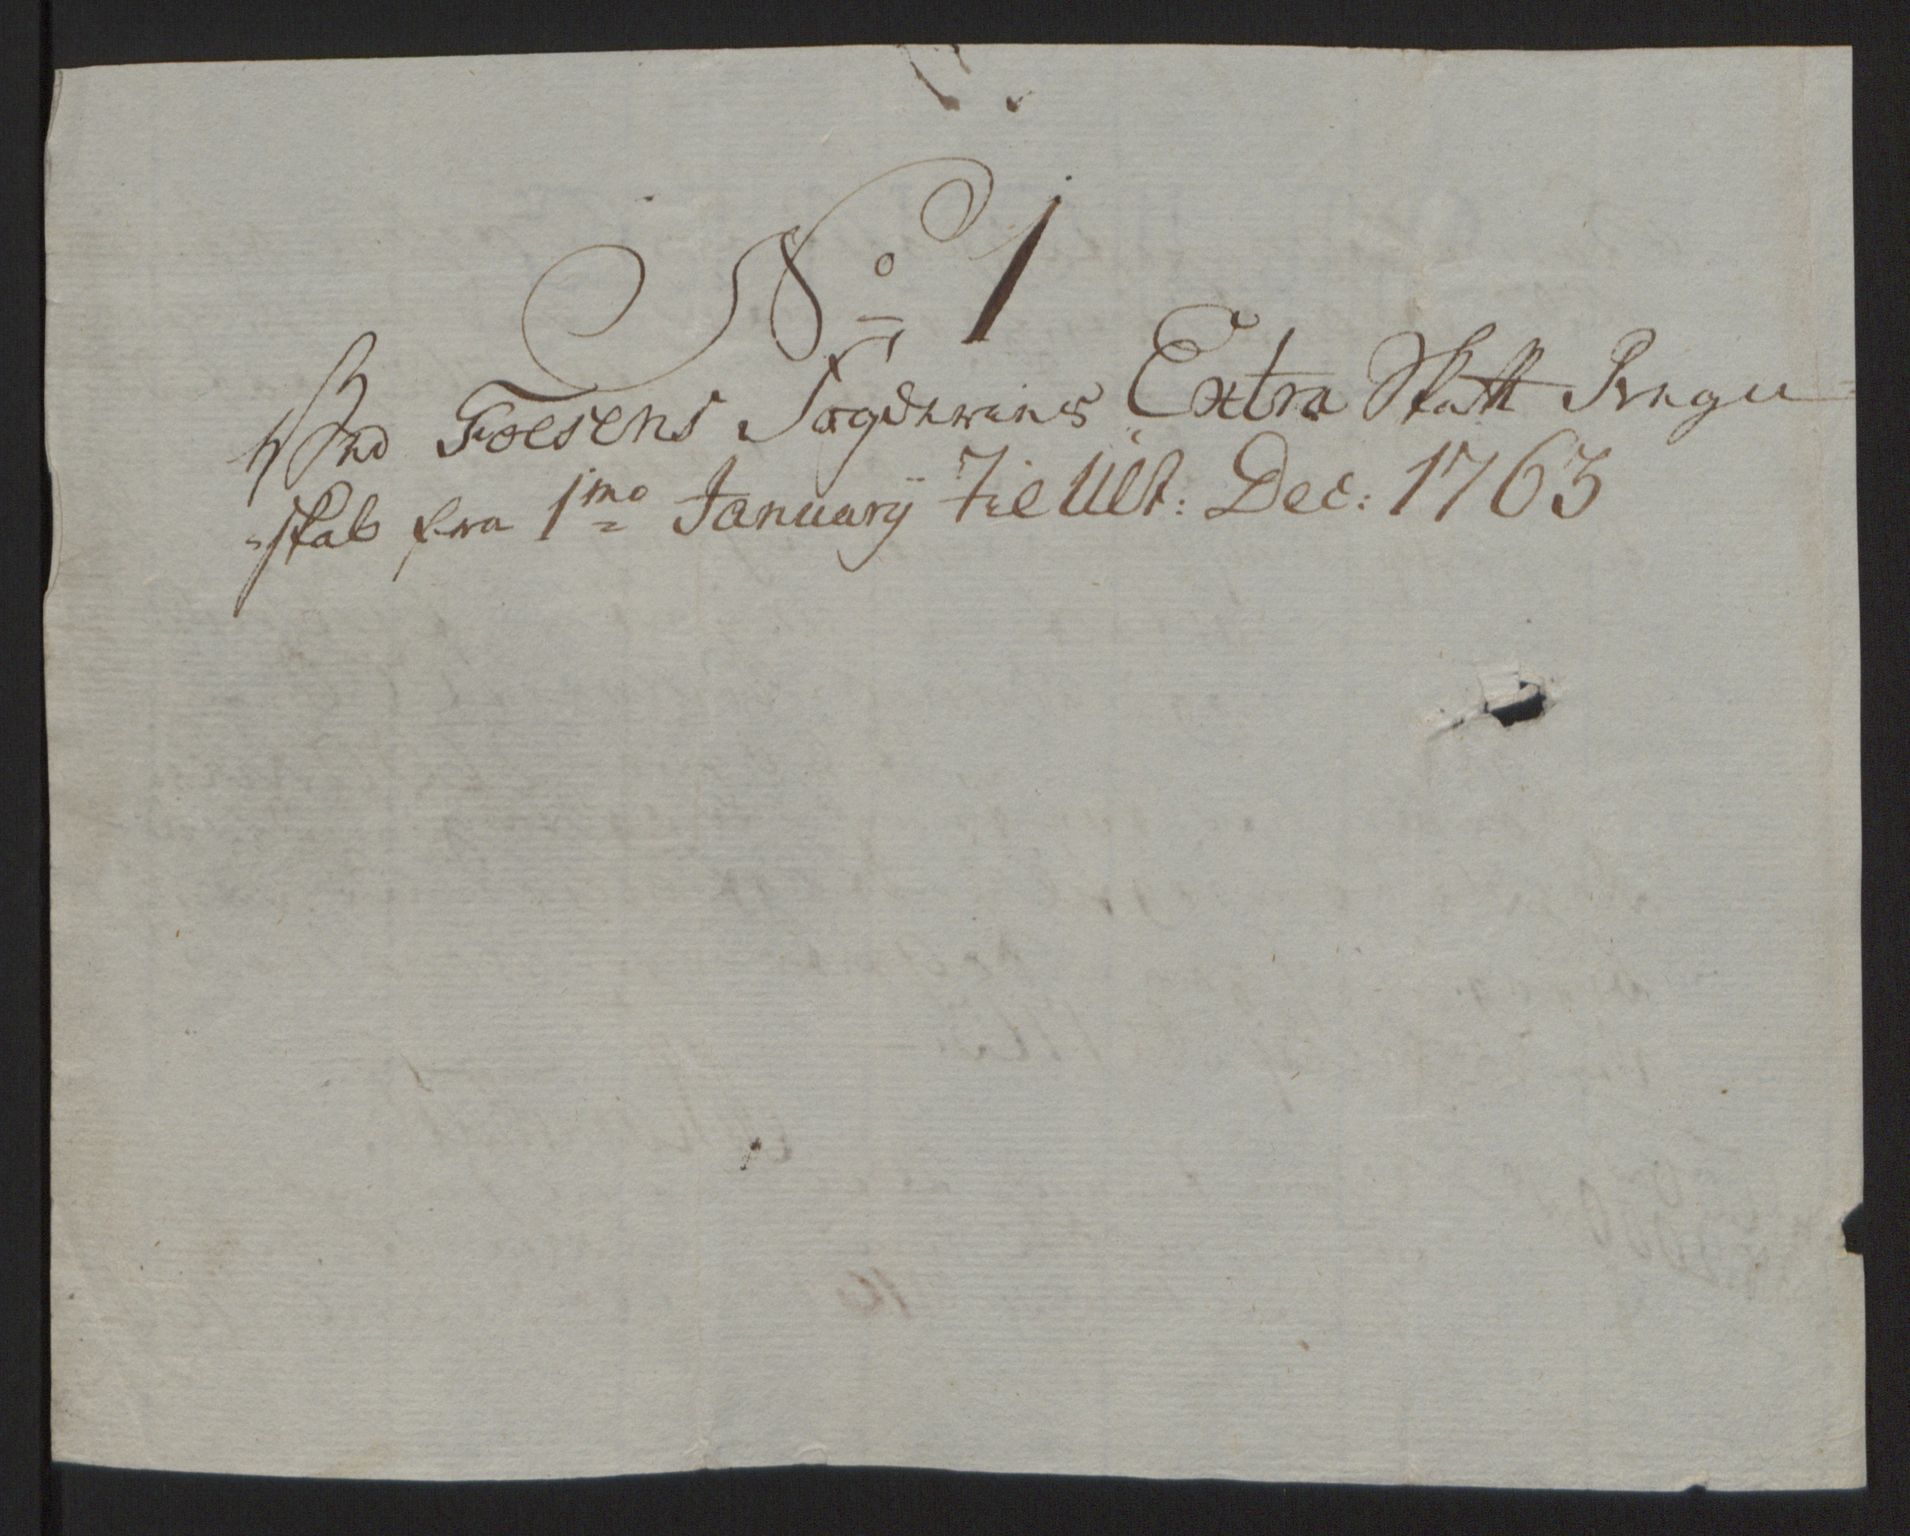 No 1
Ved Foesens Fogderies Extra Skatt Regn
skab fra 1mo Januarÿ til Ult: Dec: 1763